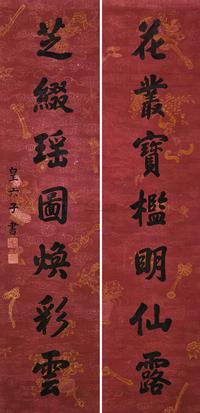 花叢寶檻明仙露
芝綴瑶圖煥彩雲
皇六子書